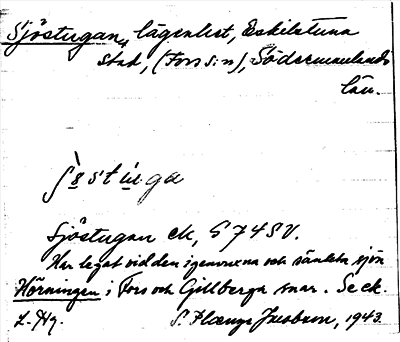 Sjöstugan, lägenhet, Eskilstuna
stad, (Fors s:n), Södermanlands
län.
Sjöstugan ek, S 74 SV.
Har legat vid den igenvuxna och sänkta sjön
Hörningen i Fors och Gillberga snar. Se ek.
1943.